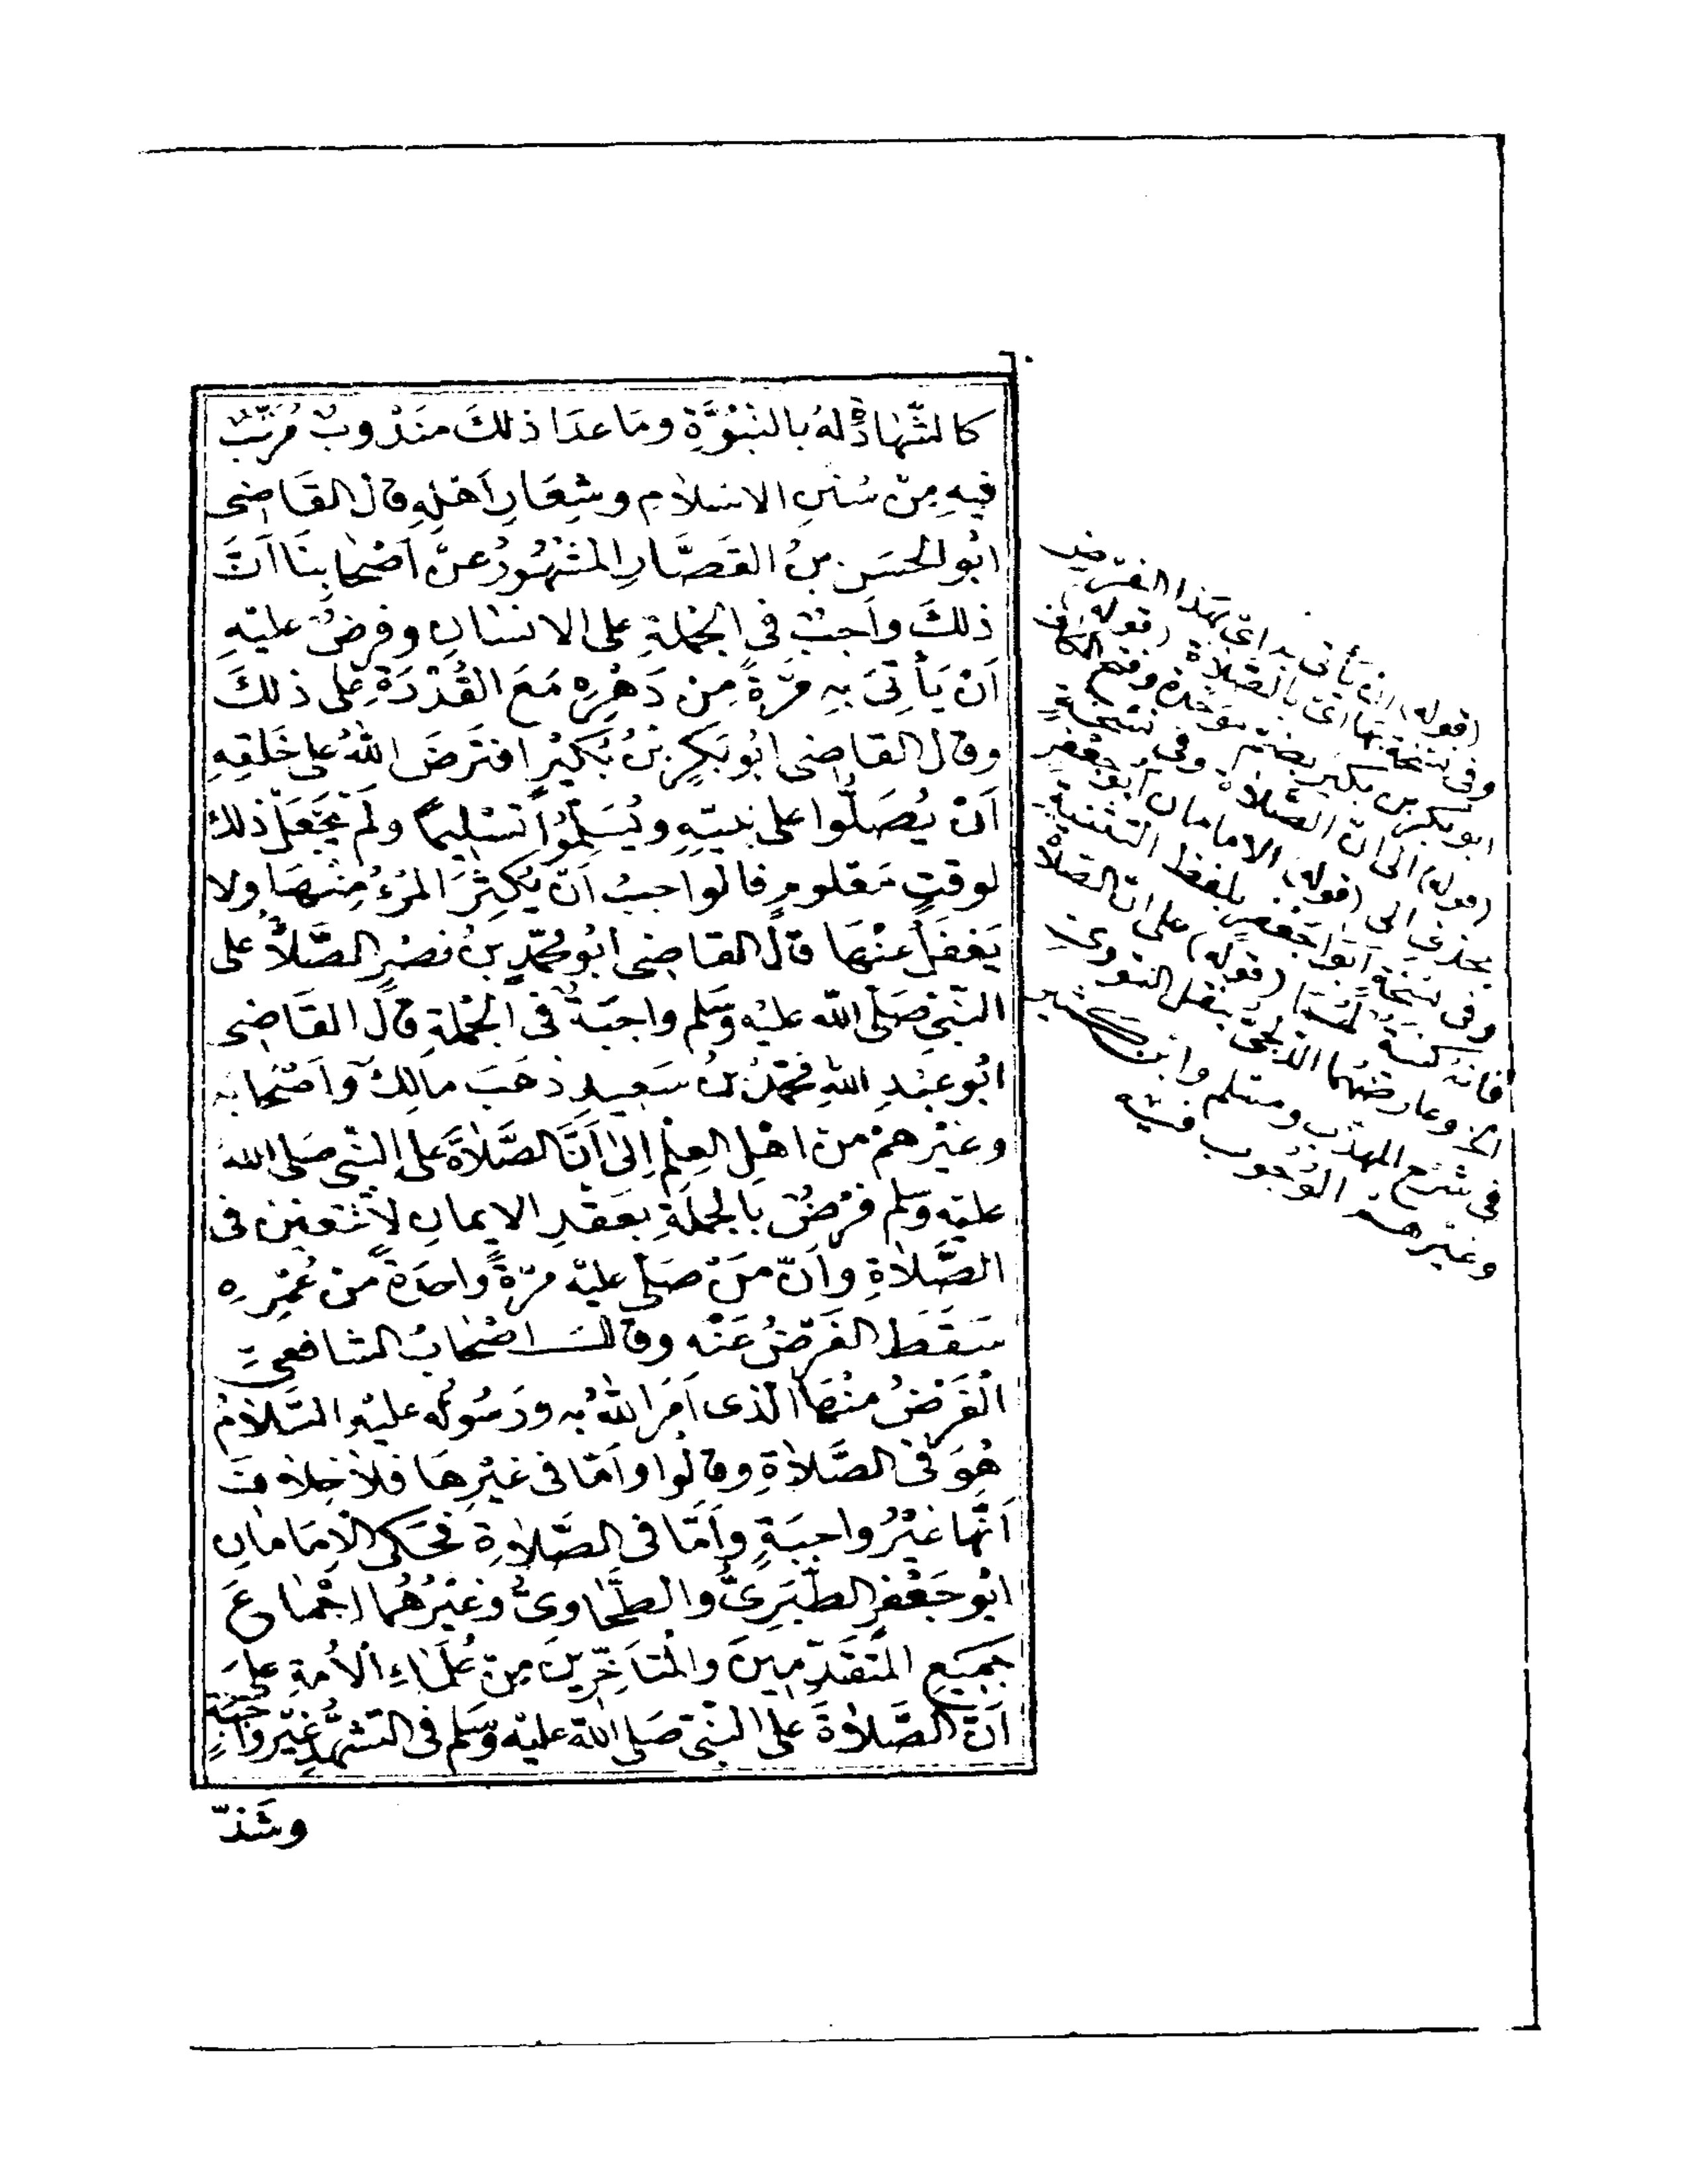 كَالشَّهَادَةِ لَهُ بِالنُّبُوَّةِ وَمَا عَدَا ذٰلِكَ مَنْدُوبٌ مُرَغَّبٌ
فِيهِ مِنْ سُنَنِ الاِسْلاَمِ وشِعَارِ اَهْلِهِ قالَ القَاضِى
ابُو الحَسَنِ بنُ القَصَّارِ المَشْهُورُ عَنْ اَصْحَابِنَا اَنَّ
ذٰلِكَ واَجِبٌ فى الجُمْلَةِ على الانْسَانِ وفَرْضٌ عليْهِ
اَنْ يَأْتِىَ بِهِ مَرَّةً مِنْ دَهْرِهِ مَعَ القُدْرَةِ عَلى ذٰلكَ
وقالَ القاضِى ابُو بَكرِ بنُ بُكَيْرٍ افتَرَضَ اللهُ على خَلقِهِ
اَنْ يُصَلُّوا على نبيّهِ ويُسَلِّمُوا تَسْلِيماً ولَمْ يَجْعَلْ ذلك
لوقتٍ مَعْلومٍ فالواجبُ اَنْ يُكثِرَ المَرْءُ مِنْهَا ولا
يَغفَلَ عَنْهَا قالَ القاضِى ابُو محمّدِ بنُ نَصْرٍ الصَّلاَةُ على
النّبىِّ صَلّى اللّه عليْه وَسَلم واجبَةٌ فى الجُمْلةِ قالَ القَاضِى
ابُو عبْدِ اللهِ مُحَمَّدُ بنُ سَعِيدٍ ذَهَبَ مالِكٌ واَصْحَابُه
وغَيْرُهمْ مِنْ اهْلِ العِلْمِ اِلىٰ اَنَّ الصَّلاَةَ عَلى النّبىِّ صَلى اللهُ
عليْهِ وَسَلم فَرْضٌ بالجُمْلَةِ بعَقْدِ الايمانِ لاَ تَتَعيّنُ فى
الصَّلاَةِ واَنّ مَنْ صَلى عليْه مَرّةً واحدَةً مِنْ عُمْرِهِ
سَقَطَ الفَرْضُ عَنْه وقالَ اصْحَابُ الشافعىِّ
الفَرْضُ مِنْهَا الّذى اَمَرَ اللهُ بهِ ورَسُولُه عليْهِ السَّلاَمُ
هُوَ فى الصَّلاَةِ وقالُوا واَمّا فى غيْرِهَا فلاَ خِلاَفَ
اَنَّهَا غيْرُ واجِبَةٍ واَمَّا فى الصَّلاَةِ فحَكى الاِمَامَانِ
ابُو جَعْفرٍ الطَّبَرِىُّ والطَّحَاوىُّ وغيْرُهُمَا اِجْمَاعَ
جَمِيعِ المُتَقَدِّمِينَ والمُتَاَخِّرِينَ مِنْ عُلَمَاءِ الاُمَّةِ عَلى
اَنَّ الصَّلاَةَ على النَّبىِّ صَلى اللهُ عليْه وَسَلم فى التشَهُّدِ غيْرُ واجِبَةٍ
وشَذّ
(قوله) ان يأتى به اى بهذا الفرض
وفى نسخة بها اى بالصلاة (قوله)
ابو بكر بن بكير بضم موحدة وفتح الكاف
(قوله) الى انّ الصلاة وفى نسخة
بحذف الى (قوله) الامامان ابو جعفر
وفى نسخة ابوا جعفر بلفظ التثنية
فانه كنية لهما (قوله) على انّ الصلاة
الخ وعارضهما الدلجى بنقل النووى
فى شرح المهذب ومسلم وابن كثير
وغيرهم الوُجُوب فيه